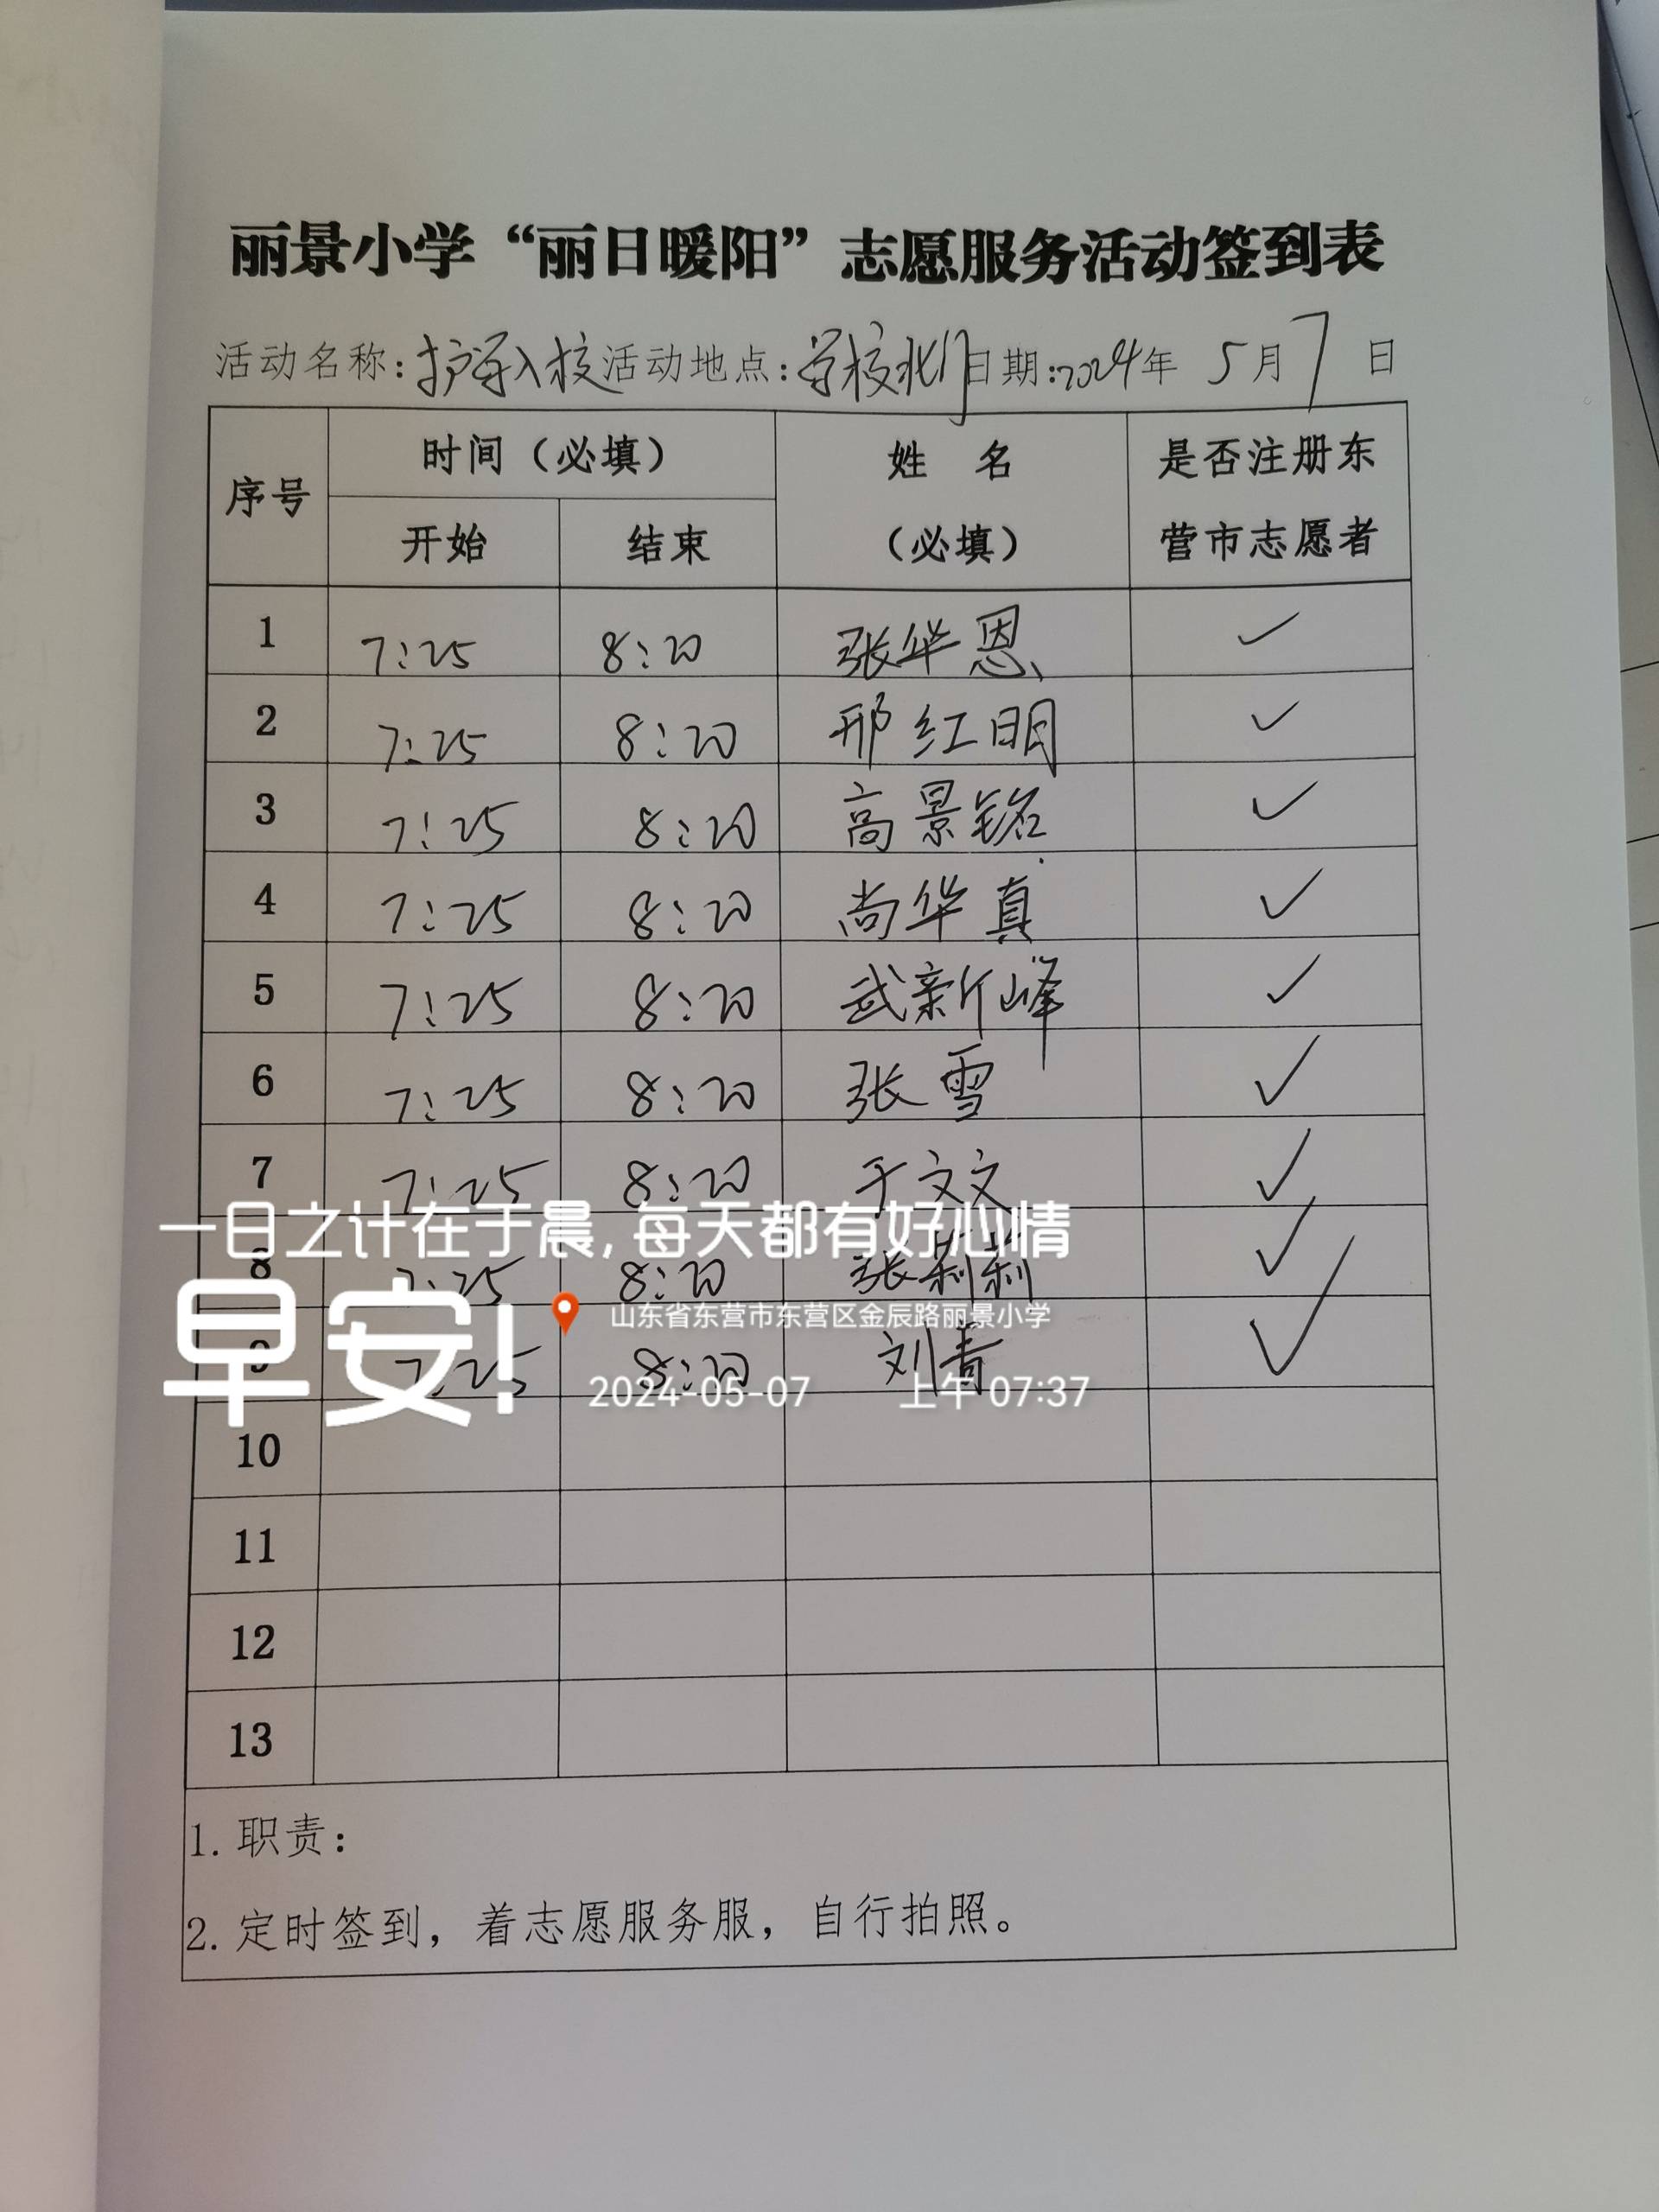 丽景小学“丽日暖阳”志愿服务活动签到表
活动名称:护学入校活动地点:学校北门日期:2024年 5月7日
序号 时间（必填） 姓 名（必填） 是否注册东营市志愿者
开始 结束
1 7:25 8:20 张华恩 ✓
2 7:25 8:20 邢红明 ✓
3 7:25 8:20 高景铭 ✓
4 7:25 8:20 尚华真 ✓
5 7:25 8:20 武新峰 ✓
6 7:25 8:20 张雪 ✓
7 7:25 8:20 于文文 ✓
一日之计在于晨,每天都有好心情
8 7:25 8:20 张莉莉 ✓
早安!
山东省东营市东营区金辰路丽景小学
9 7:25 8:20 刘青 ✓
2024-05-07 上午 07:37
10
11
12
13
1.职责:
2.定时签到，着志愿服务服，自行拍照。